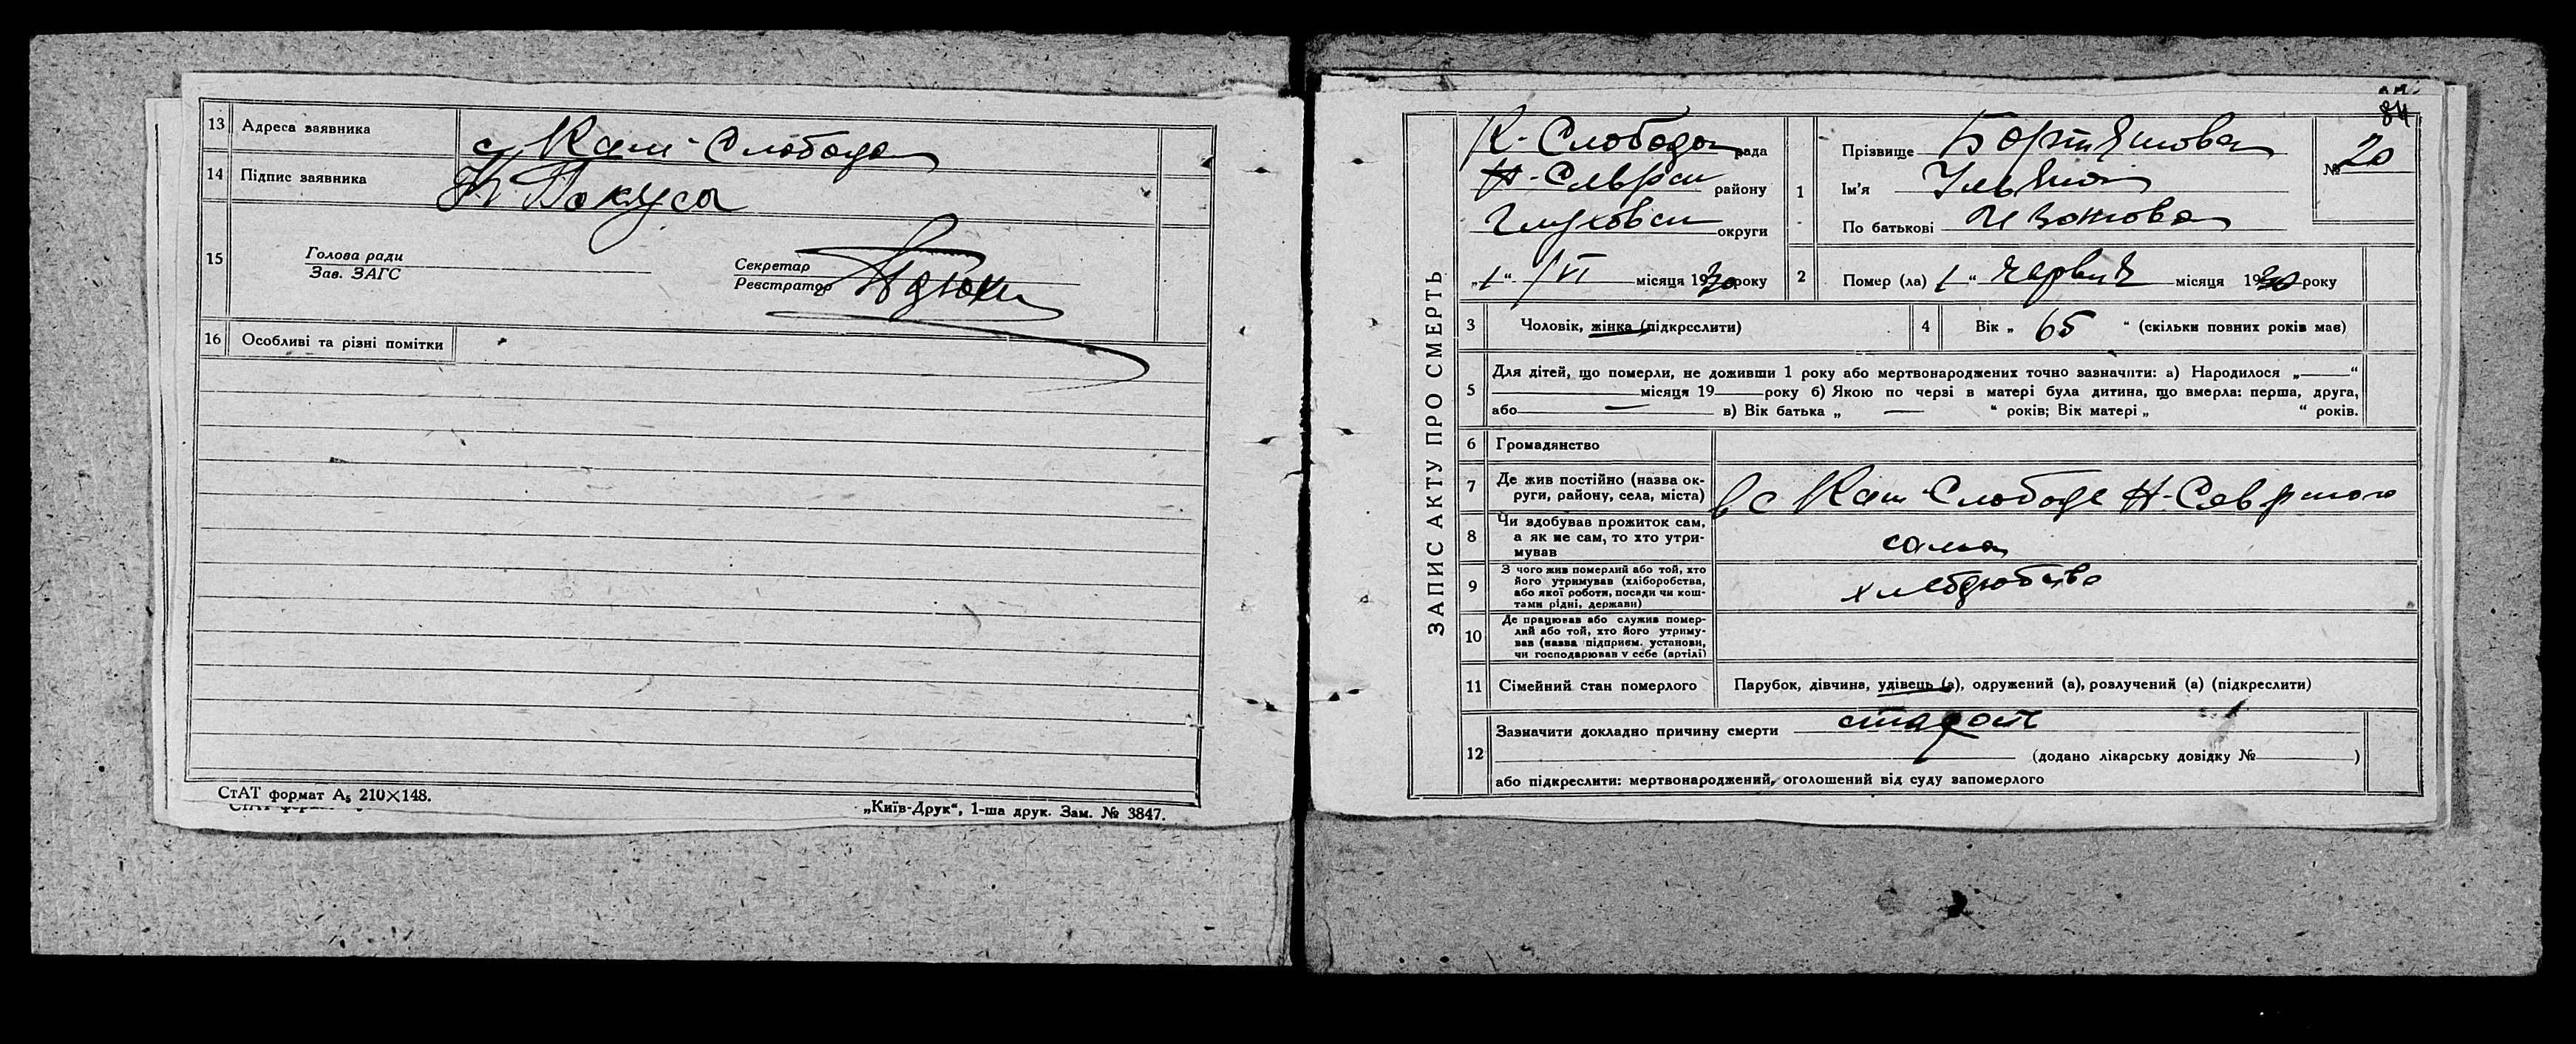 13 Адреса заявника с Кам-Слобода
14 Підпис заявника
15 Голова ради
Зав. ЗАГС
Секретар
Реєстратор
16 Особливі та різні помітки
СтАТ формат А5 210×148.
„Київ-Друк“, 1-ша друк. Зам. № 3847.
84
ЗАПИС АКТУ ПРО СМЕРТЬ
К-Слобода рада
Н-Сіврск району
Глуховск округи
„1“ /VI місяця 1930 року
1 Прізвище
Ім'я Ульяна
По батькові Ивановна
№ 20
2 Помер (ла) 1 “ червня місяця 1930 року
3 Чоловік, жінка (підкреслити)
4 Вік „ 65 “ (скільки повних років має)
5 Для дітей, що померли, не доживши 1 року або мертвонароджених точно зазначити: а) Народилося „ “
місяця 19 року б) Якою по черзі в матері була дитина, що вмерла: перша, друга,
або — в) Вік батька „ — “ років; Вік матері „ “ років.
6 Громадянство
7 Де жив постійно (назва ок-
руги, району, села, міста) в с Кам-Слободе Н-Сев
8 Чи здобував прожиток сам,
а як не сам, то хто утри-
мував сама
9 З чого жив померлий або той, хто
його утримував (хліборобства,
або якої роботи, посади чи кош-
тами рідні, держави)
10 Де працював або служив помер-
лий або той, хто його утриму-
вав (назва підприєм. установи,
чи господарював у себе (артілі)
11 Сімейний стан померлого Парубок, дівчина, удівець (а), одружений (а), розлучений (а) (підкреслити)
12 Зазначити докладно причину смерти старость
(додано лікарську довідку № )
або підкреслити: мертвонароджений, оголошений від суду запомерлого